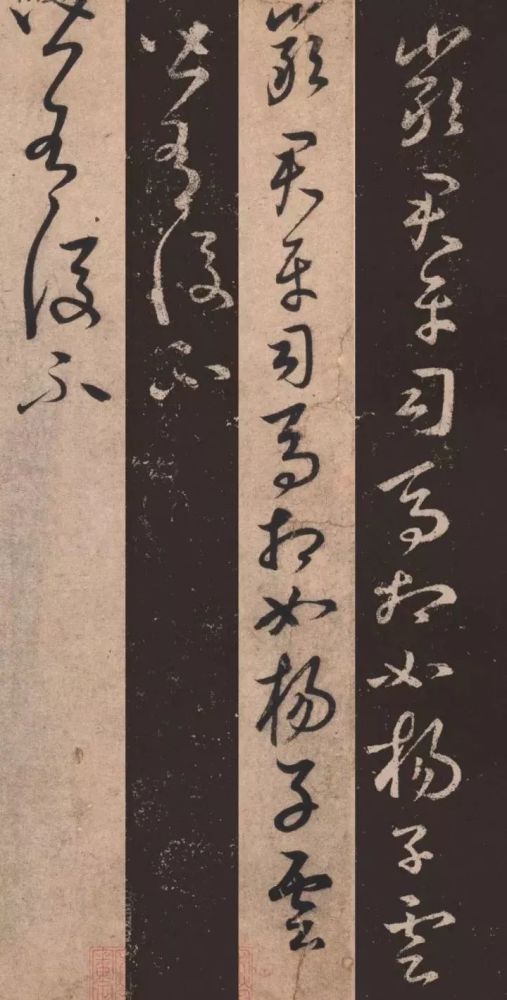 嚴君平司馬相如楊子雲
嚴君平司馬相如楊子雲
皆有後不
皆有後不